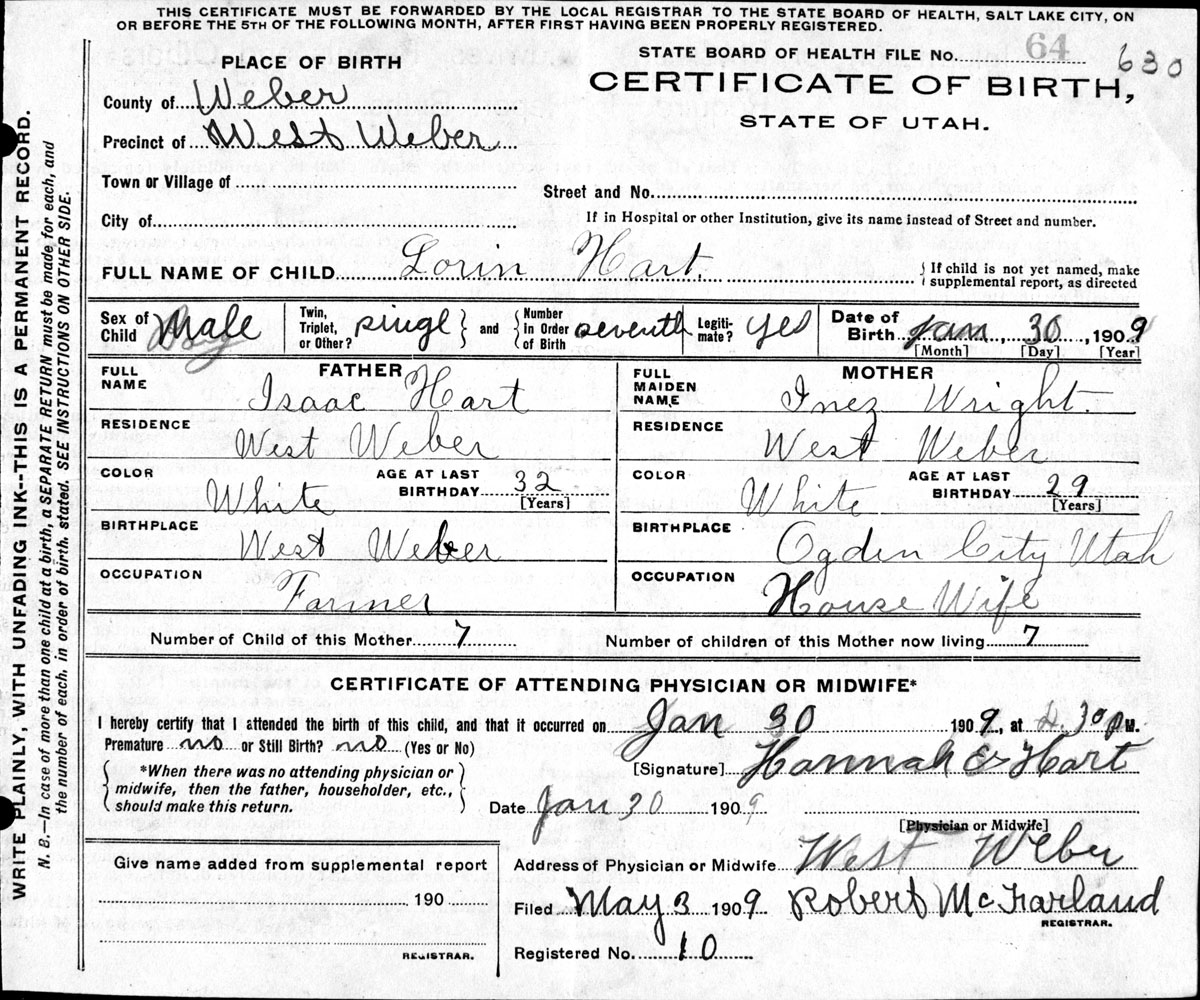 THIS CERTIFICATE MUST BE FORWARDED BY THE LOCAL REGISTRAR TO THE STATE BOARD OF HEALTH, SALT LAKE CITY, ON
OR BEFORE THE 5TH OF THE FOLLOWING MONTH, AFTER FIRST HAVING BEEN PROPERLY REGISTERED.
WRITE PLAINLY, WITH UNFADING INK--THIS IS A PERMANENT RECORD.
N. B.—In case of more than one child at a birth, a SEPARATE RETURN must be made for each, and
the number of each, in order of birth, stated. SEE INSTRUCTIONS ON OTHER SIDE.
PLACE OF BIRTH
County of Weber
Precinct of West Weber
Town or Village of
City of
STATE BOARD OF HEALTH FILE No. 64 630
CERTIFICATE OF BIRTH,
STATE OF UTAH.
Street and No.
If in Hospital or other Institution, give its name instead of Street and number.
FULL NAME OF CHILD Lorin Hart
If child is not yet named, make
supplemental report, as directed
Sex of Child Male
Twin, Triplet, or Other? singl and Number in Order of Birth seventh
Legitimate? yes
Date of Birth Jan, 30, 1909
[Month] [Day] [Year]
FATHER
FULL NAME Isaac Hart
RESIDENCE West Weber
COLOR White AGE AT LAST BIRTHDAY 32 [Years]
BIRTHPLACE West Weber
OCCUPATION Farmer
MOTHER
FULL MAIDEN NAME Inez Wright.
RESIDENCE West Weber
COLOR White AGE AT LAST BIRTHDAY 29 [Years]
BIRTHPLACE Ogden City Utah
OCCUPATION House Wife
Number of Child of this Mother 7 Number of children of this Mother now living 7
CERTIFICATE OF ATTENDING PHYSICIAN OR MIDWIFE*
I hereby certify that I attended the birth of this child, and that it occurred on Jan 30 1909, at 30 P.M.
Premature no or Still Birth? no (Yes or No)
*When there was no attending physician or
midwife, then the father, householder, etc.,
should make this return.
[Signature] Hannah E Hart
Date Jan 30 1909
[Physician or Midwife]
Give name added from supplemental report
190
REGISTRAR.
Address of Physician or Midwife West Weber
Filed May 3 1909 Robert McFarland
REGISTRAR.
Registered No. 10